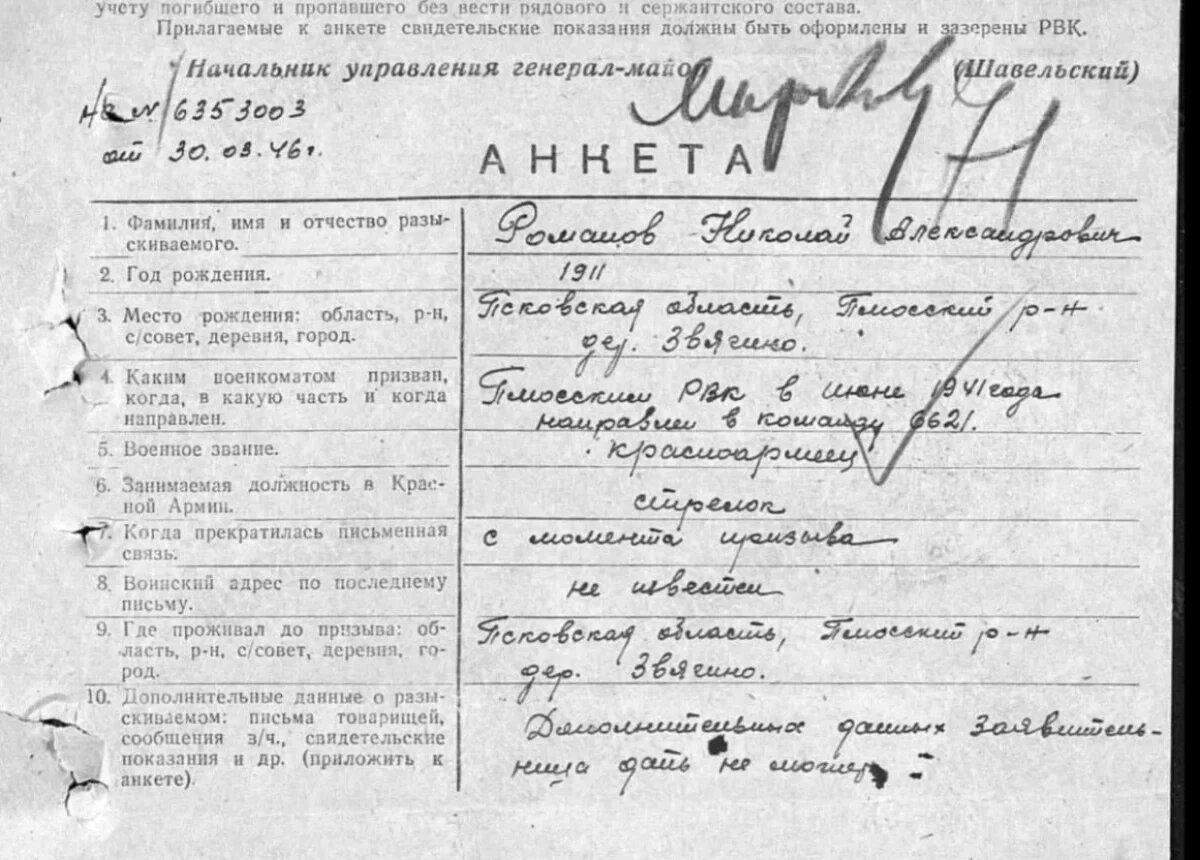 учету погибшего и пропавшего без вести рядового и сержантского состава.
Прилагаемые к анкете свидетельские показания должны быть оформлены и заверены РВК.
Начальник управления генерал-майор
(Шавельский)
На № 6353003
от 30.03.46г.
АНКЕТА
1. Фамилия, имя и отчество разы-
скиваемого.
Романов Николай Александрович
2. Год рождения.
1911
3. Место рождения: область, р-н,
с/совет, деревня, город.
Псковская область, Плюсский р-н
дер. Звягино.
4. Каким военкоматом призван,
когда, в какую часть и когда
направлен.
Плюсским РВК в июне 1941 года
направлен в команду 6621.
5. Военное звание.
красноармеец
6. Занимаемая должность в Крас-
ной Армии.
стрелок
7. Когда прекратилась письменная
связь.
с момента призыва
8. Воинский адрес по последнему
письму.
не известен
9. Где проживал до призыва: об-
ласть, р-н, с/совет, деревня, го-
род.
Псковская область, Плюсский р-н
дер. Звягино.
10. Дополнительные данные о разы-
скиваемом: письма товарищей,
сообщения в/ч., свидетельские
показания и др. (приложить к
анкете).
Дополнительных данных заявитель-
ница дать не может.